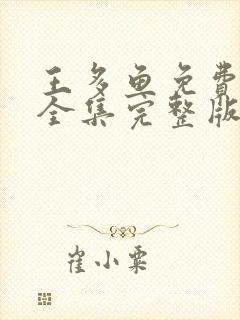 王多鱼免费
全集完整版
崔小粟